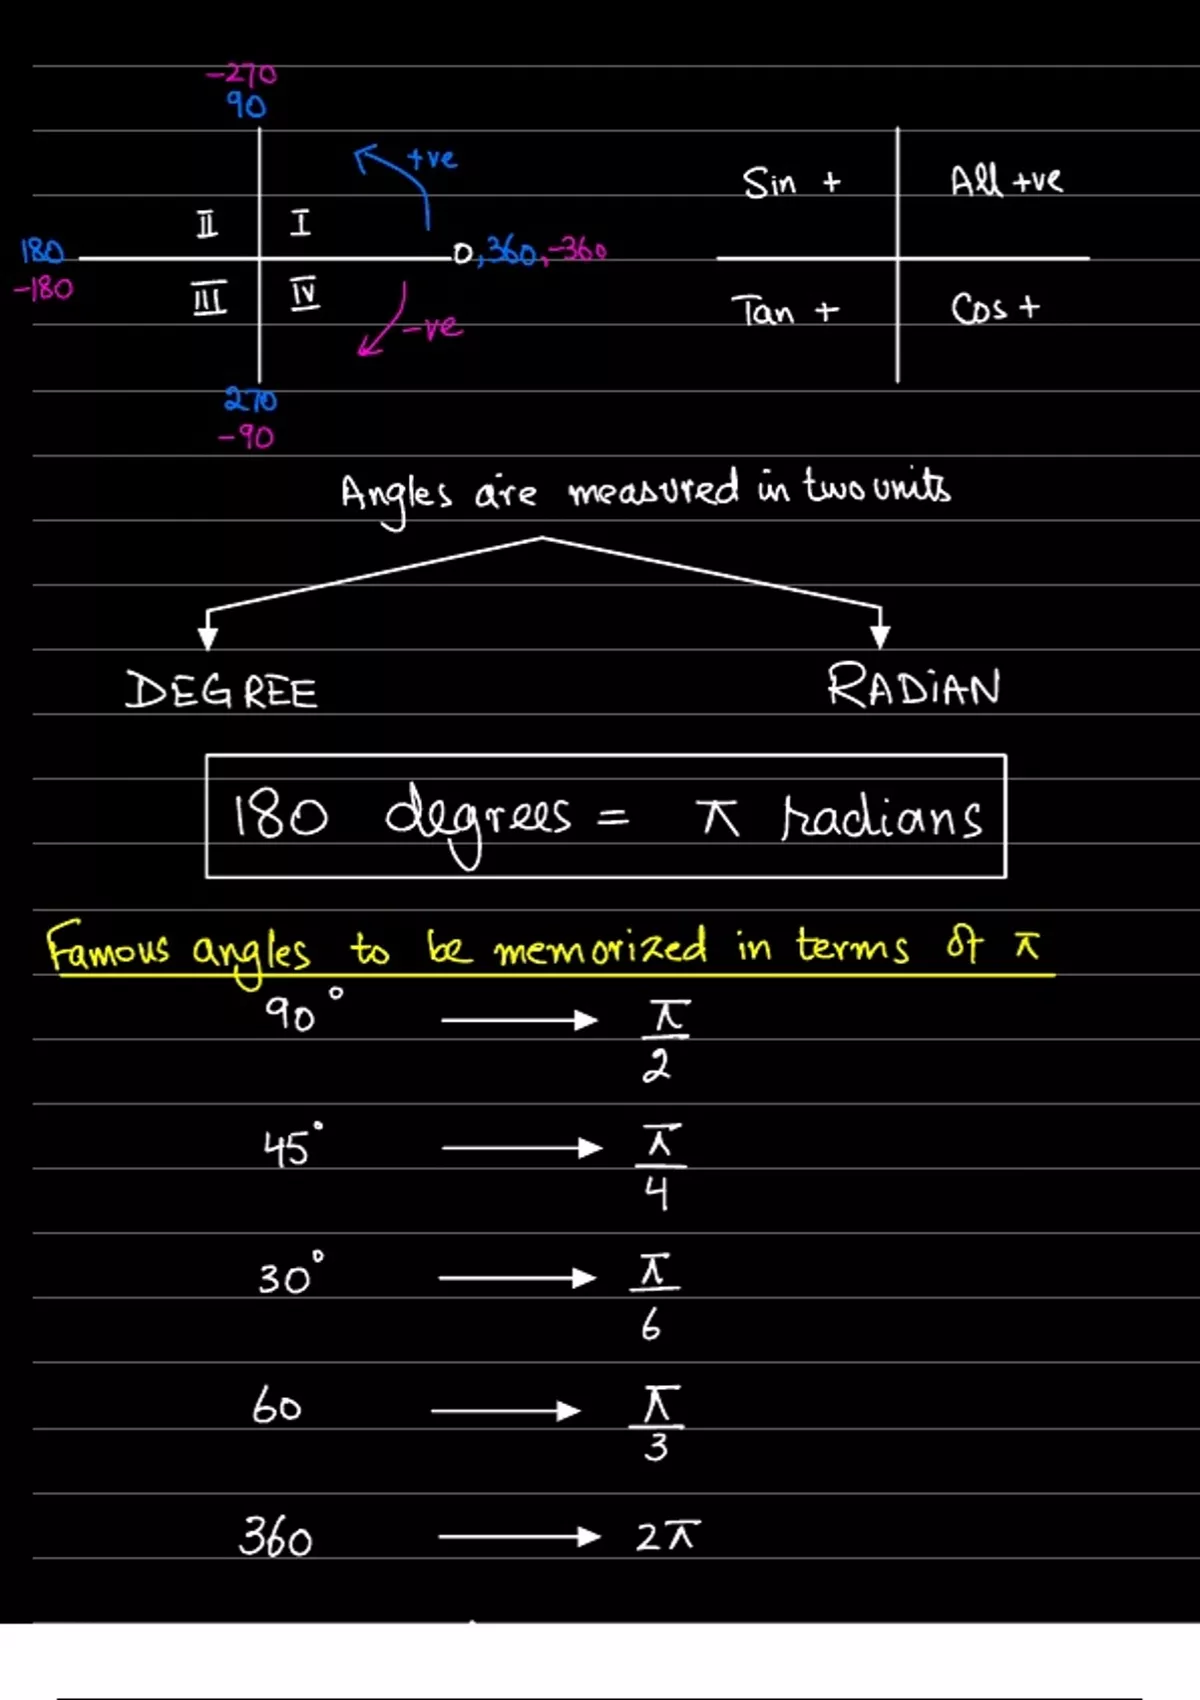 -270
90
+ve
Sin + All +ve
II I
180 0, 360, -360
-180
III IV
-ve
Tan + Cos +
270
-90
Angles are measured in two units
DEGREE RADIAN
180 degrees = π radians
Famous angles to be memorized in terms of π
90° → π/2
45° → π/4
30° → π/6
60 → π/3
360 → 2π